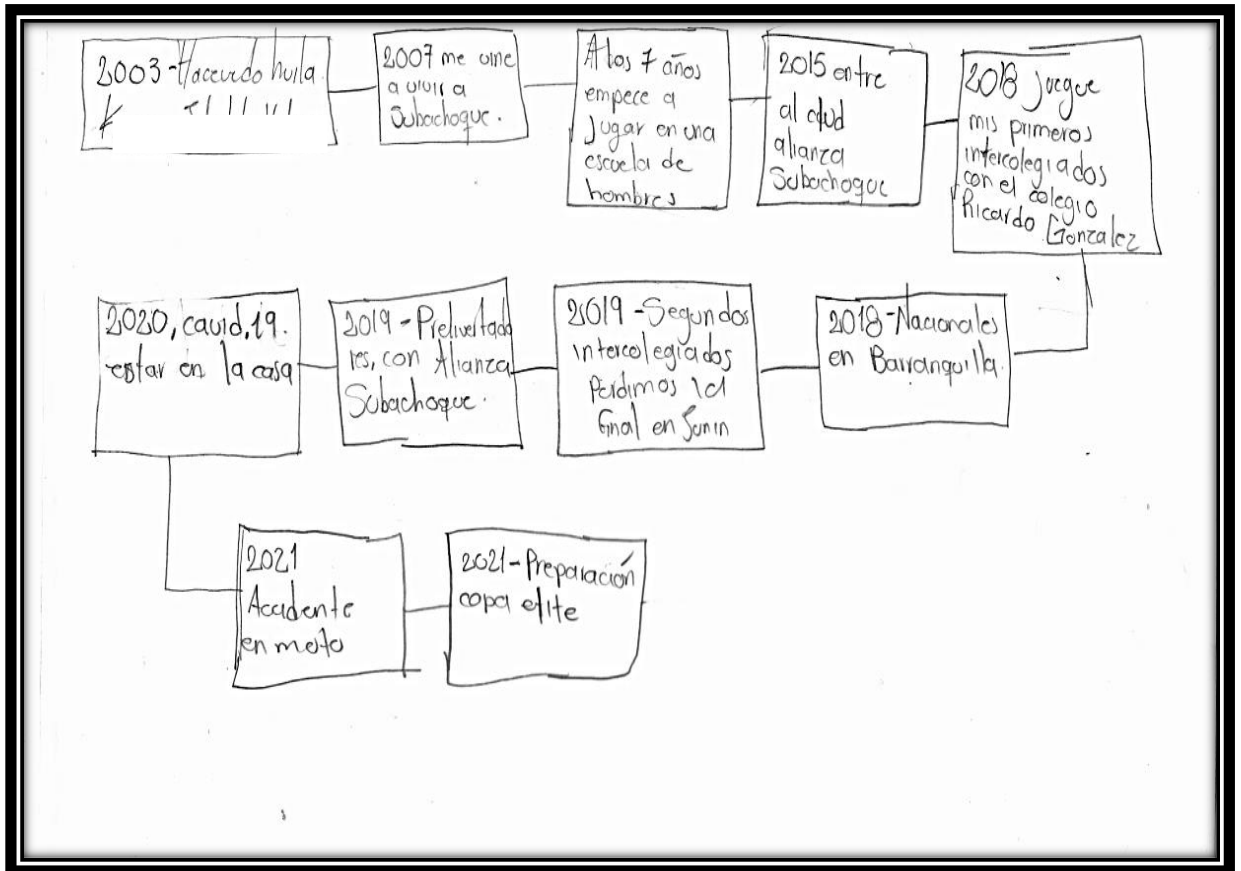 2003-Hacevedo huila
2007 me vine
a vivir a
Subachoque.
A los 7 años
empece a
Jugar en una
escuela de
hombres
2015 entre
al club
alianza
Subachoque
2018 juegue
mis primeros
intercolegiados
con el colegio
Ricardo Gonzalez
2018-Nacionales
en Barranquilla.
2019-Segundos
intercolegiados
Perdimos la
final en Junin
2019-Prelivertado
res, con Alianza
Subachoque.
2020, cavid, 19.
estar en la casa
2021
Accidente
en moto
2021-Preparación
copa elite